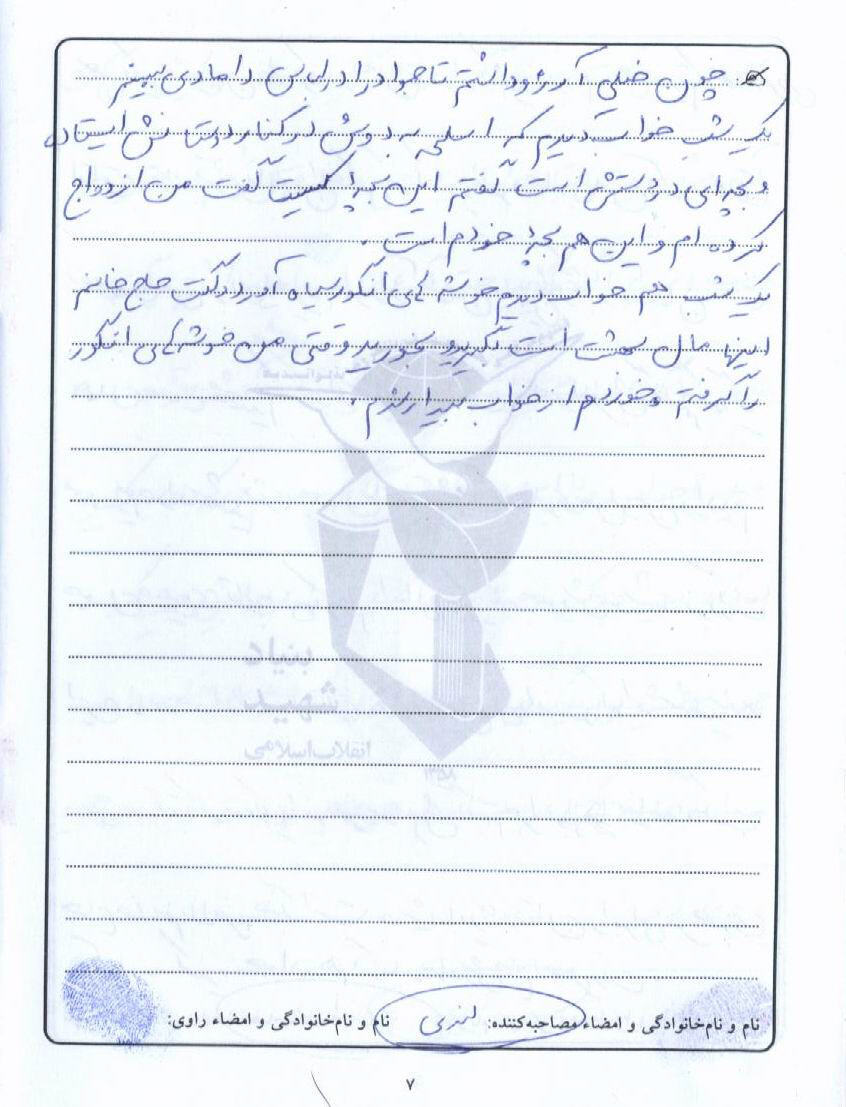 چون خیلی آرزو داشتم تا جواد را در لباس دامادی ببینم
یک شب خواب دیدم که اسلحه به دوش در کنار دوستانش ایستاده
و بچه‌ای در دستش است گفتم این بچه کیست گفت من ازدواج
کرده ام و این هم بچهٔ خودم است.
یک شب هم خواب دیدم خوشه های انگور سیاه آورد و گفت حاج خانم
اینها مال بهشت است بگیرید و بخورید وقتی من خوشه های انگور
را گرفتم و خوردم از خواب بیدار شدم.
بنیاد
شهید
انقلاب اسلامی
۱۳۵۸
نام و نام‌خانوادگی و امضاء مصاحبه‌کننده: نام و نام‌خانوادگی و امضاء راوی:
۷